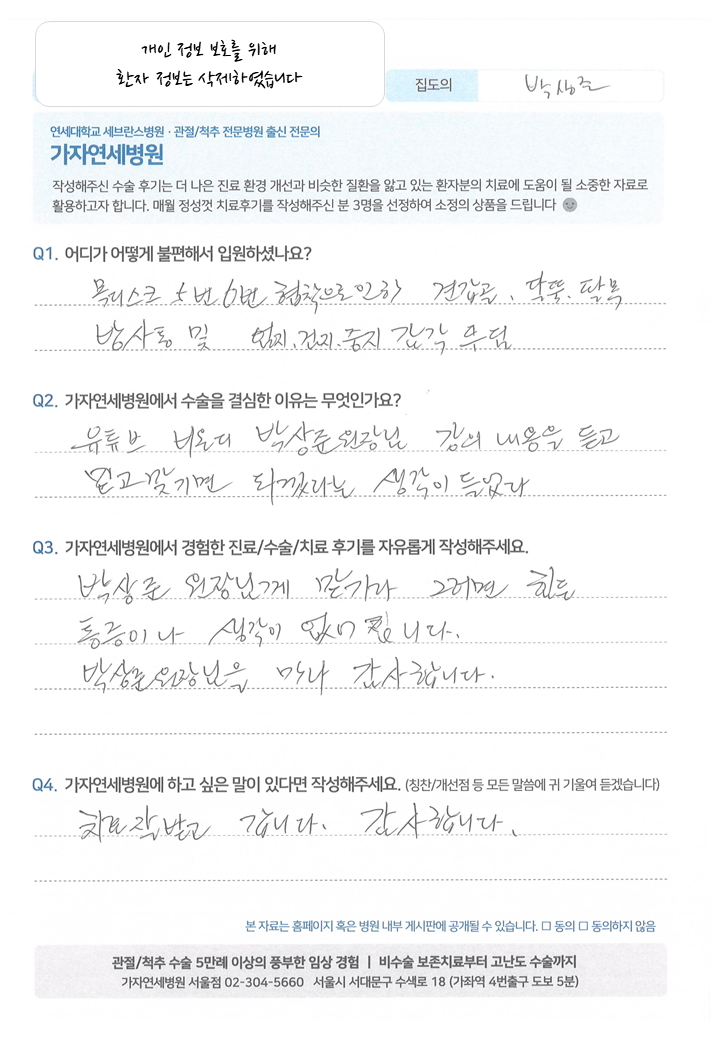 개인 정보 보호를 위해
환자 정보는 삭제하였습니다
집도의 박상준
연세대학교 세브란스병원 · 관절/척추 전문병원 출신 전문의
가자연세병원
작성해주신 수술 후기는 더 나은 진료 환경 개선과 비슷한 질환을 앓고 있는 환자분의 치료에 도움이 될 소중한 자료로
활용하고자 합니다. 매월 정성껏 치료후기를 작성해주신 분 3명을 선정하여 소정의 상품을 드립니다
Q1. 어디가 어떻게 불편해서 입원하셨나요?
목디스크 5번 6번 협착으로 인하 견갑골, 팔뚝, 팔목
방사통 및 엄지, 검지, 중지 감각 무딤
Q2. 가자연세병원에서 수술을 결심한 이유는 무엇인가요?
유튜브 비온디 박상준원장님 강의 내용을 듣고
믿고맞기면 되겠라는 생각이 들었다
Q3. 가자연세병원에서 경험한 진료/수술/치료 후기를 자유롭게 작성해주세요.
박상준 원장님게 맏가라 그러면 힘든
통증이나 생각이 없어 집니다.
박상준원장님을 마나 감사합니다.
Q4. 가자연세병원에 하고 싶은 말이 있다면 작성해주세요. (칭찬/개선점 등 모든 말씀에 귀 기울여 듣겠습니다)
치료잘받고 갑니다. 감사합니다.
본 자료는 홈페이지 혹은 병원 내부 게시판에 공개될 수 있습니다. □ 동의 □ 동의하지 않음
관절/척추 수술 5만례 이상의 풍부한 임상 경험 | 비수술 보존치료부터 고난도 수술까지
가자연세병원 서울점 02-304-5660 서울시 서대문구 수색로 18 (가좌역 4번출구 도보 5분)